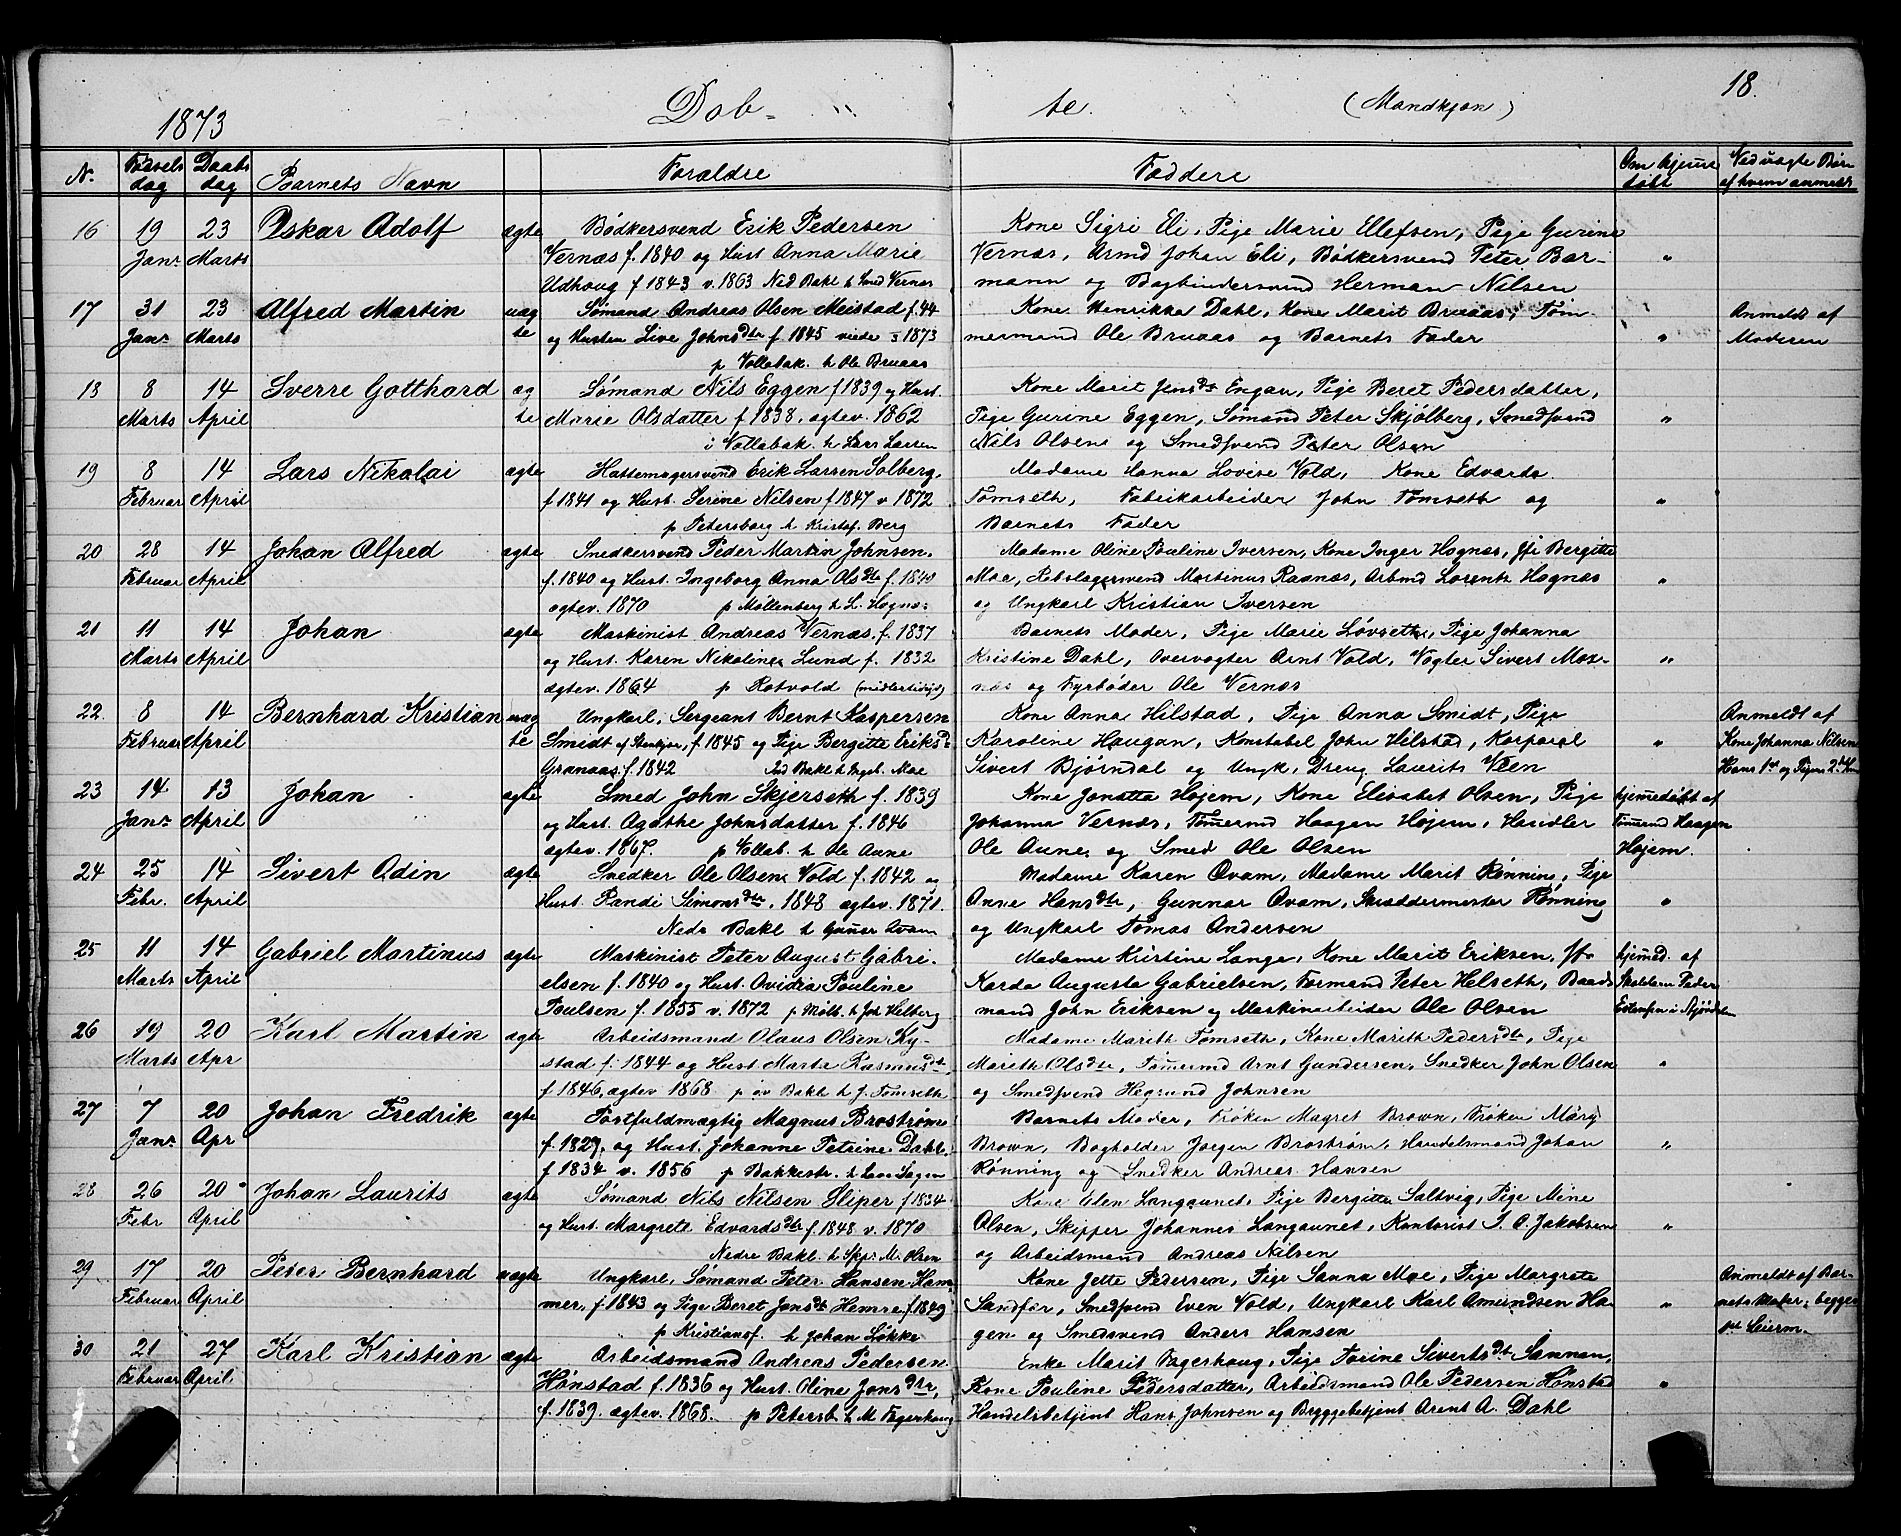 1873 Døb- te. (Mandkjøn) 18.
N. Fødselsdag Daabsdag Barnets Navn Forældre Faddere Om hjemmedøbt Ved uægte Børn af hvem anmeldt
16 19 23 Oskar Adolf ægte Bødkersvend Erik Pedersen Kone Sigri Eli, Pige Marie Ellefsen, Pige Gurine
Janr Marts Vernæs f. 1840 og Hust Anna Marie Vernæs, Armd Johan Eli, Bødkersvend Peter Bar- "
Udhoug f 1843 v. 1863 Ned Bakl h Smed Vernæs mann og Bogbindersvend Herman Nilsen
17 31 23 Alfred Martin uæg Sømand Andreas Olsen Meistad f. 44 Kone Henrikke Dahl, Kone Marit Bruaas, Tøm Anmeldt af
Janr Marts te og Husten Live Johnsdtr f. 1845 viede 1873 mermand Ole Bruaas og Barnets Fader " Moderen
p Vollabak. h Ole Bruaas
18 8 14 Sverre Gotthard æg Sømand Nils Eggen f 1839 og Hust. Kone Marit Jensdt Engan, Pige Beret Pedersdatter,
Marts April te Marie Olsdatter f 1838, ægtev. 1862 Pige Gurine Eggen, Sømand Peter Skjølberg, Smedsvend "
i Vollabak. h Lars Larsen Nils Olsen og Smedsvend Peter Olsen
19 8 14 Lars Nikolai ægte Hattemagersvend Erik Larsen Solberg, Madame Hanna Lovise Vold, Kone Edvarda
Februar April f. 1841 og Hust. Serine Nilsen f 1847 v 1872 Tømseth, Fabrikarbeider John Tømseth og "
p Petersborg h Kristof. Berg Barnets Fader
20 28 14 Johan Alfred ægte Snedkersvend Peder Martin Johnsen. Madame Oline Pauline Iversen, Kone Inger Hognæs, Bergitte
Februar April f. 1840 og Hust. Ingeborg Anna Olsdtr f. 1840 Moe, Rebslagersvend Martinus Raanæs, Arbmd Lorents Hognæs "
ægtev. 1870 p Møllenberg h L. Hognæs og Ungkarl Kristian Iversen
21 11 14 Johan ægte Maskinist Andreas Vernæs, f. 1837 Barnets Moder, Pige Marie Løvseth, Pige Johanna
Marts April og Hust. Karen Nikoline Lund f. 1832 Kristine Dahl, Overvogter Arnt Vold, Vogter Sivert Mox- "
ægtev. 1864 p Rotvold (midlertidigt) næs og Fyrbøder Ole Vernæs
22. 8 14 Bernhard Kristian uæg Ungkarl, Sergeant Bernt Kaspersen Kone Anna Hilstad, Pige Anna Smidt, Pige Anmeldt af
Februar April te Smidt af Stenkjær, f. 1845 og Pige Bergitte Eriksdt Karoline Haugan, Konstabel John Hilstad, Korporal " Kone Johanna Nilsen
Granaas. f. 1842 Ned Bakl h Ingeb. Moe Sivert Bjørndal og Ungk. Dreng Laurits Veen Hans 1st og Pigens 2d
23 14 13 Johan ægte Smed John Skjerseth f. 1839 Kone Jonetta Hojem, Kone Elisabet Olsen, Pige hjemedøbt af
Janr April og Hust. Agathe Johnsdatter f. 1846 Johanna Vernæs, Tømermd Haagen Hojem, Handler Tømermd Haagen
ægtev. 1867. p Vollab. h Ole Aune Ole Aune og Smed Ole Olsen Hojem.
24 25 14 Sivert Odin ægte Snedker Ole Olsen Vold f. 1842 og Madame Karen Ovam, Madame Marit Rønning, Pige
Febr. April Hust. Randi Simonsdtr. 1848 ægtev. 1871. Anne Hansdtr, Gunnar Ovam, Skræddermester Rønning "
Nedr Bakl h Gunar Ovam og Ungkarl Tomas Andersen
25 11 14 Gabriel Martinus ægte Maskinist Peter August Gabri- Madame Kristine Lange, Kone Marit Eriksen, hjemmed. af
Marts April elsen f. 1840 og Hust. Ovidia Pauline Karda Augusta Gabrielsen, Formand Peter Helseth, Baads Peder
Poulsen f. 1855 v. 1872 p. Møllb. h Joh Helberg mand John Eriksen og Maskinarbeider Ole Olsen i Stjørdalen
26 19 20 Karl Martin ægte Arbeidsmand Olaus Olsen Ky- Madame Marith Tømseth, Kone Marith Pedersdtr, Pige
Marts Apr stad f. 1844 og Hust Marta Rasmusdt Marith Olsdtr, Tømermd Arnt Gundersen, Snedker John Olsen "
f 1846, ægtev 1868 p øv Bakl h J. Tømseth og Smedsvend Hegrund Johnsen
27 7 20 Johan Fredrik ægte Postfuldmægtig Magnus Brostrøm Barnets Moder, Frøken Magret Brown, Frøken Mary
Janr Apr f. 1827, og Hust. Johanne Petrine Dahl Brown, Bogholder Jørgen Brostrøm, Handelsmand Johan "
f 1834 v. 1856 p Bakkestr. h Rønning og Snedker Andreas Hansen
28 26 20 Johan Laurits ægte Sømand Nils Nilsen Sliper f 1834 Kone Elen Langaunet, Pige Bergitte Saltvig, Pige Mine
Febr April og Hust. Margrete Edvardsdtr f. 1848 v. 1870 Olsen, Skipper Johannes Langaunet, Kontorist J. A. Jakobsen "
Nedre Bakl. h Skpr. M. Olsen og Arbeidsmand Andreas Nilsen
29 17 20 Peder Bernhard uægte Ungkarl, Sømand Peter Hansen Ham Kone Jette Pedersen, Pige Sanna Moe, Pige Margrete Anmeldt af Bar-
Februar April mer, f. 1843 og Pige Beret Jonsdt Hemre f 1849 Sandfær, Smedsvend Even Vold, Ungkarl Karl Amundsen Ha " nets Moder, begges
p Kristiansf. h Johan Løkke gen og Smedsvend Anders Hansen 1st Leierm.
30 21 27 Karl Kristian ægte Arbeidsmand Andreas Pedersen Enke Marit Fagerhaug, Pige Torine Sivertsdt Sannan,
Februar April. Hønstad f. 1836 og Hust. Oline Jonsdtr, Kone Pauline Pedersdatter, Arbeidsmand Ole Pedersen Hønstad "
f. 1839. ægtev. 1868. p Petersb h M Fagerhaug Handelsbetjent Hans Johnsen og Bryggebetjent Arent A. Dahl